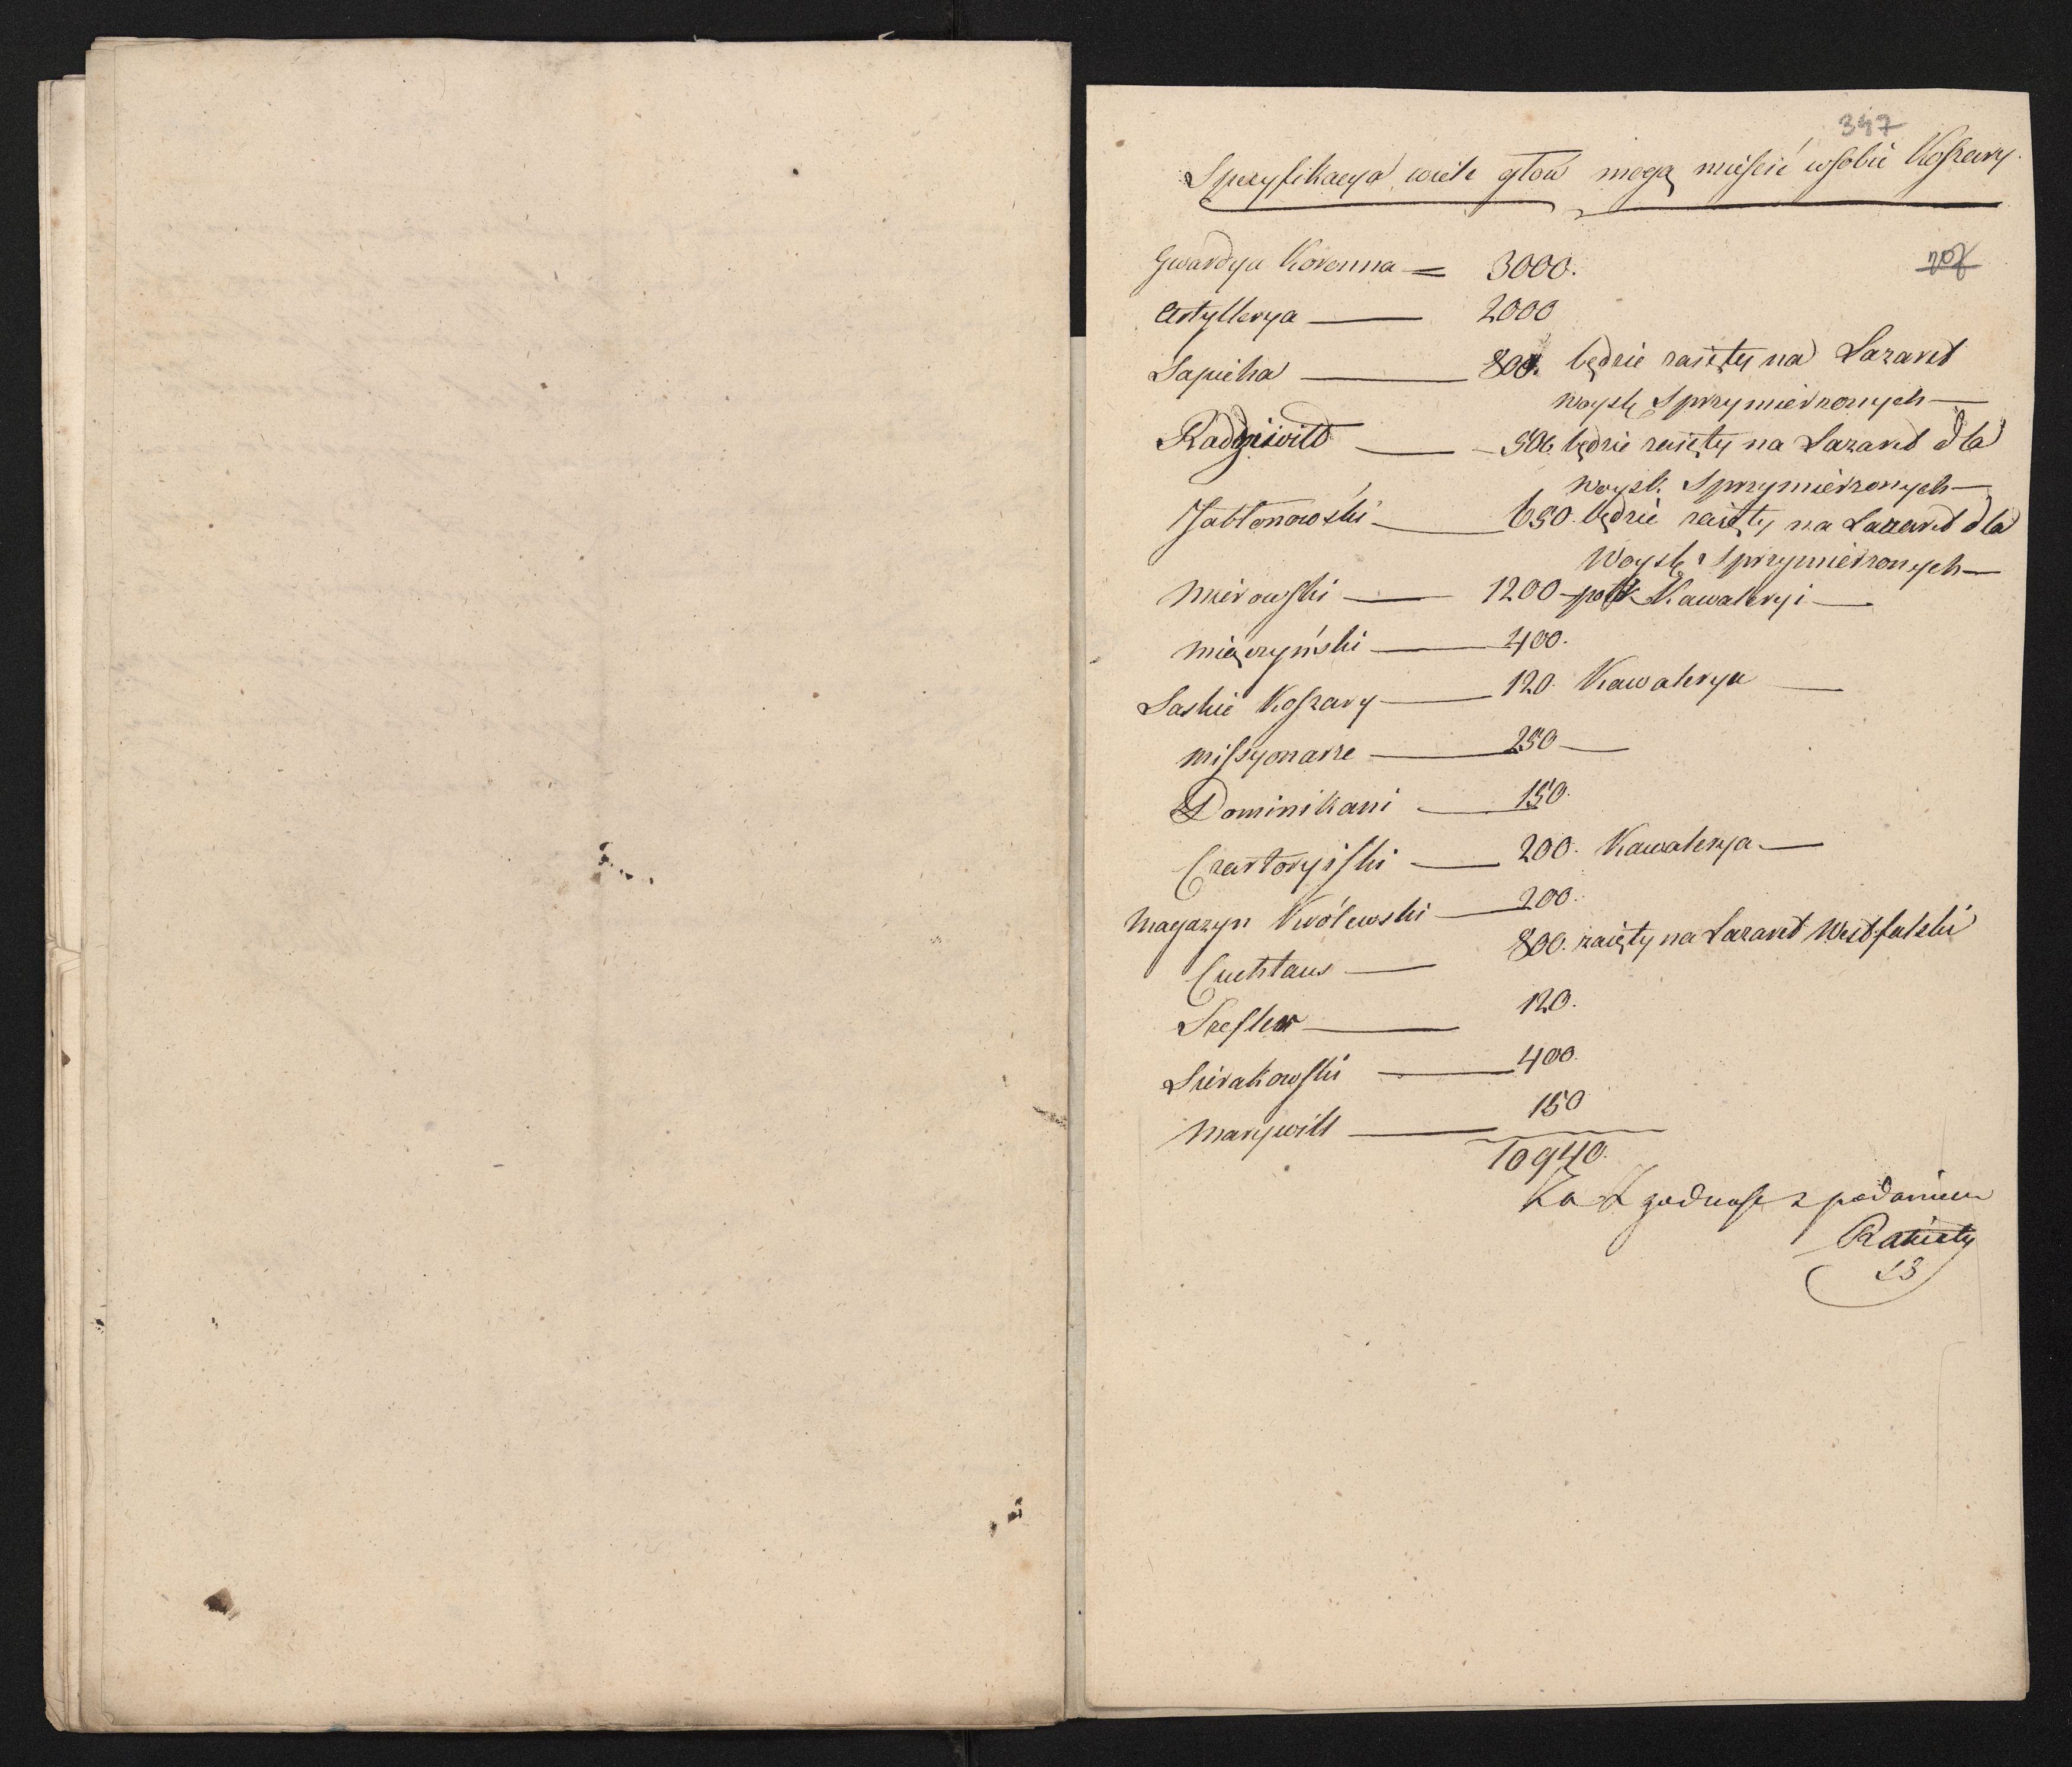 347
Specyfikacya wiele głów mogą mieścić w sobie Koszary.
Gwardya Koronna = 3000.
Artyllerya — 2000
Sapieha — 800. będzie zaięty na Lazaret
woysk Sprzymierzonych —
Radziwiłł — 500. będzie zaięty na Lazaret dla
woysk. Sprzymierzonych —
Jabłonowski — 650. będzie zaięty na Lazaret dla
Woysk Sprzymierzonych —
Mirowski — 1200 — Kawaleryi —
Miączyński — 400.
Saskie Koszary — 120. Kawalerya —
Missyonarze — 250 —
Dominikani — 150.
Czartoryiski — 200. Kawalerya —
Magazyn Królewski — 200.
Cuchtaus — 800. zaięty na Lazaret Westfalski
— 120.
Sierakowski — 400.
Marywill — 150
10940.
Za Zgodność z podaniem
Rakiety